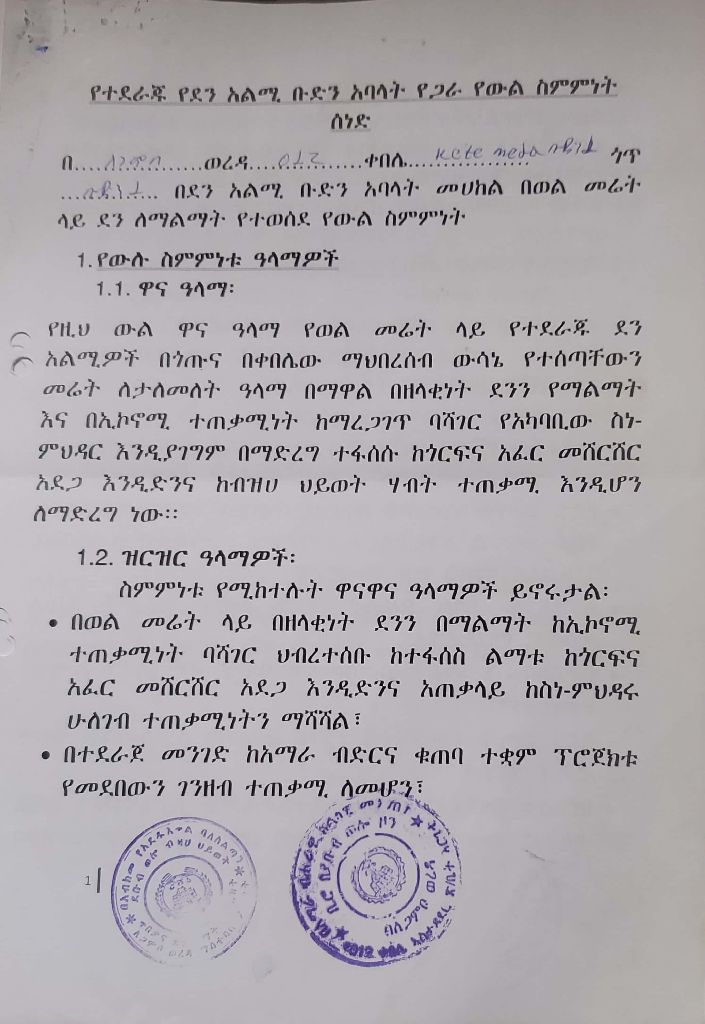 የተደራጁ የደን አልሚ ቡድን አባላት የጋራ የውል ስምምነት
ሰነድ
በ.... ለጋምቦ ......ወረዳ.... 012 ......ቀበሌ.... kete meda ጎጥ
በደን አልሚ ቡድን አባላት መሀከል በወል መሬት
ላይ ደን ለማልማት የተወሰደ የውል ስምምነት
1. የውሉ ስምምነቱ ዓላማዎች
1.1. ዋና ዓላማ፡
የዚህ ውል ዋና ዓላማ የወል መሬት ላይ የተደራጁ ደን
አልሚዎች በጎጡና በቀበሌው ማህበረሰብ ውሳኔ የተሰጣቸውን
መሬት ለታለመለት ዓላማ በማዋል በዘላቂነት ደንን የማልማት
እና በኢኮኖሚ ተጠቃሚነት ከማረጋገጥ ባሻገር የአካባቢው ስነ-
ምህዳር እንዲያገግም በማድረግ ተፋሰሱ ከጎርፍና አፈር መሸርሸር
አደጋ እንዲድንና ከብዝሀ ህይወት ሃብት ተጠቃሚ እንዲሆን
ለማድረግ ነው፡፡
1.2. ዝርዝር ዓላማዎች፡
ስምምነቱ የሚከተሉት ዋናዋና ዓላማዎች ይኖሩታል፡
• በወል መሬት ላይ በዘላቂነት ደንን በማልማት ከኢኮኖሚ
ተጠቃሚነት ባሻገር ህብረተሰቡ ከተፋሰስ ልማቱ ከጎርፍና
አፈር መሸርሸር አደጋ እንዲድንና አጠቃላይ ከስነ-ምህዳሩ
ሁለገብ ተጠቃሚነትን ማሻሻል፤
• በተደራጀ መንገድ ከአማራ ብድርና ቁጠባ ተቋም ፕሮጀክቱ
የመደበውን ገንዘብ ተጠቃሚ ለመሆን፤
1|